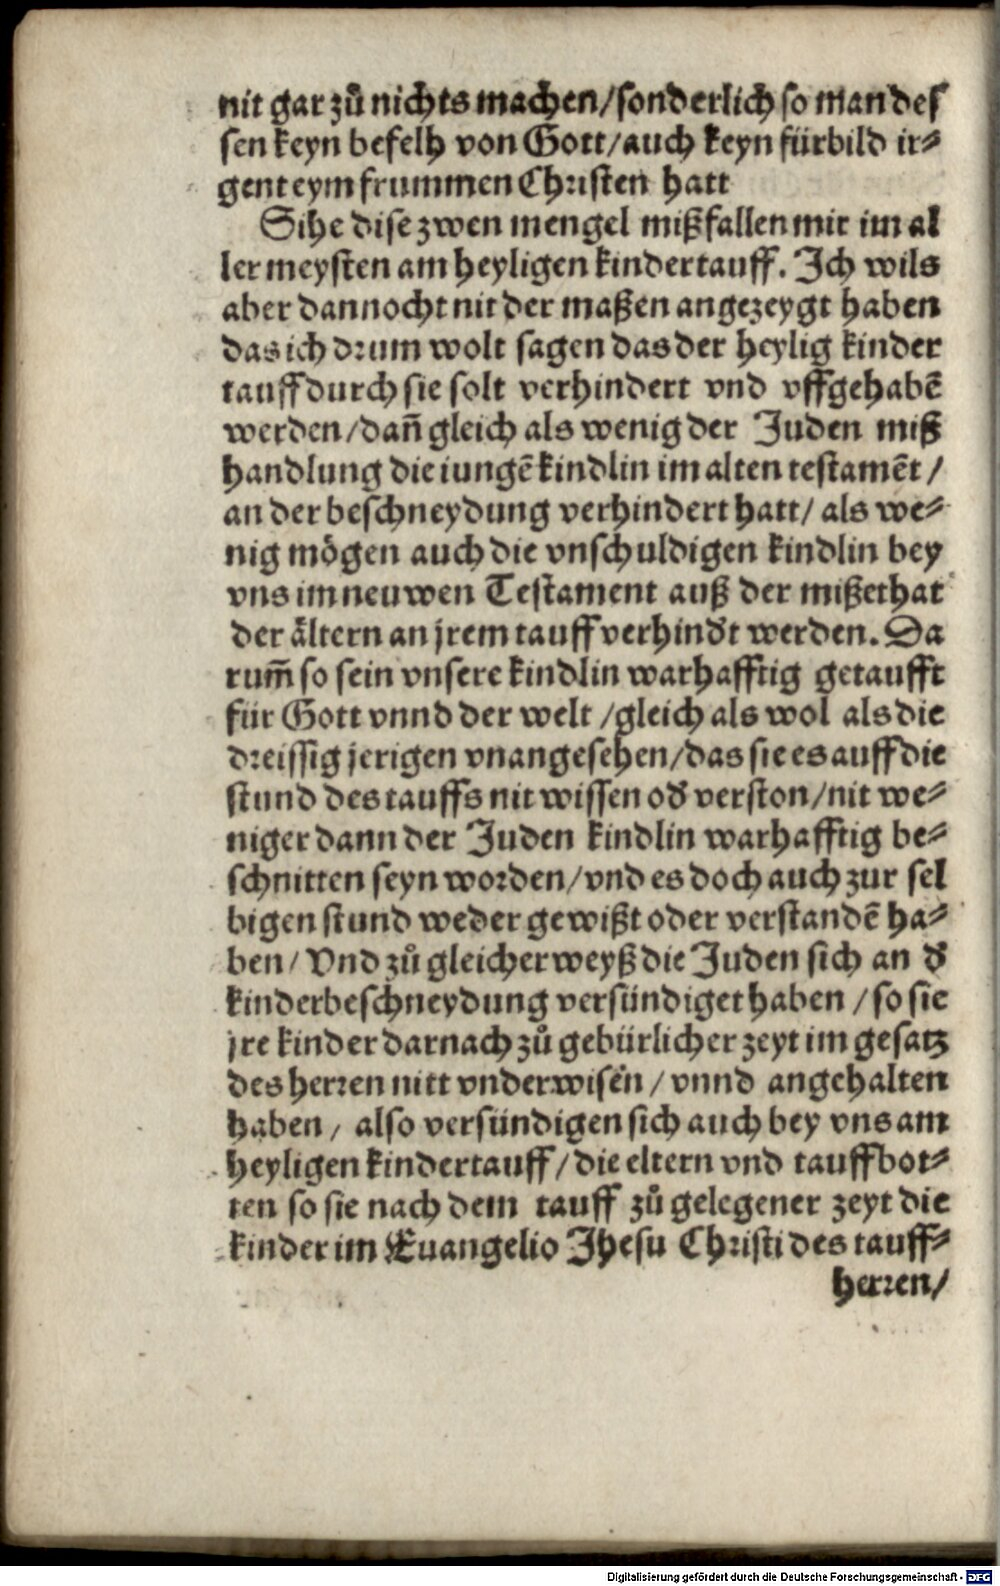 nit gar zů nichts machen/sonderlich so man des
sen keyn befelh von Gott/auch keyn fürbild ir⸗
gent eym frummen Christen hatt
Sihe dise zwen mengel mißfallen mir im al
ler meysten am heyligen kindertauff. Ich wils
aber dannocht nit der maßen angezeygt haben
das ich drum wolt sagen das der heylig kinder
tauff durch sie solt verhindert vnd vffgehabē
werden/dañ gleich als wenig der Juden miß
handlung die iungē kindlin im alten testamēt/
an der beschneydung verhindert hatt/ als we⸗
nig mögen auch die vnschuldigen kindlin bey
vns im neuwen Testament auß der mißethat
der ältern an jrem tauff verhindt werden. Da
rum̃ so sein vnsere kindlin warhafftig getaufft
für Gott vnnd der welt /gleich als wol als die
dreissig jerigen vnangesehen/das sie es auff die
stund des tauffs nit wissen od verston/nit we⸗
niger dann der Juden kindlin warhafftig be⸗
schnitten seyn worden/vnd es doch auch zur sel
bigen stund weder gewißt oder verstandē ha⸗
ben/ Vnd zů gleicher weyß die Juden sich an d
kinderbeschneydung versündiget haben /so sie
jre kinder darnach zů gebürlicher zeyt im gesatz
des herren nitt vnderwisen/ vnnd angehalten
haben/ also versündigen sich auch bey vns am
heyligen kindertauff/die eltern vnd tauffbot⸗
ten so sie nach dem tauff zů gelegener zeyt die
kinder im Euangelio Jhesu Christi des tauff⸗
herren/
Digitalisierung gefördert durch die Deutsche Forschungsgemeinschaft - DFG